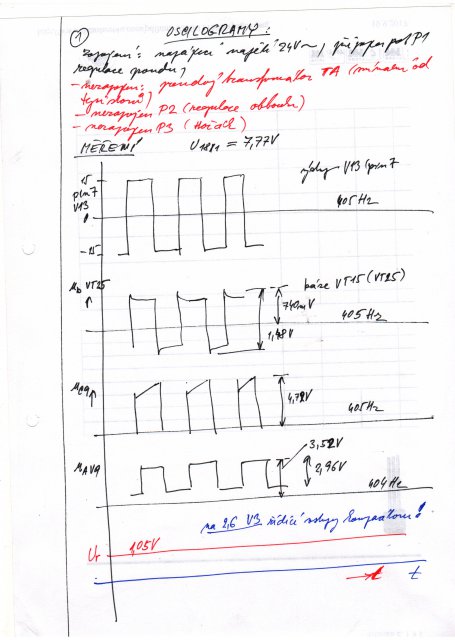 1
OSCILOGRAMY:
Zapojení: napájecí napětí 24V~, připojen pot P1
regulace proudu,
- nezapojen: proudový transformátor TA (snímání od
tyristorů)
- nezapojen P2 (regulace oblouku)
- nezapojen P3 (Hořčík)
MĚŘENÍ
= 7,77V
výstup V13 pin 7
15
pin 7
V13
0
-15
405Hz
VT25
báze VT15 (VT25)
740mV
405Hz
1,48V
4,72V
405Hz
3,52V
2,96V
404Hz
na 2,6 V3 řídící vstupy komparátoru!
Ur
1,05V
t
t